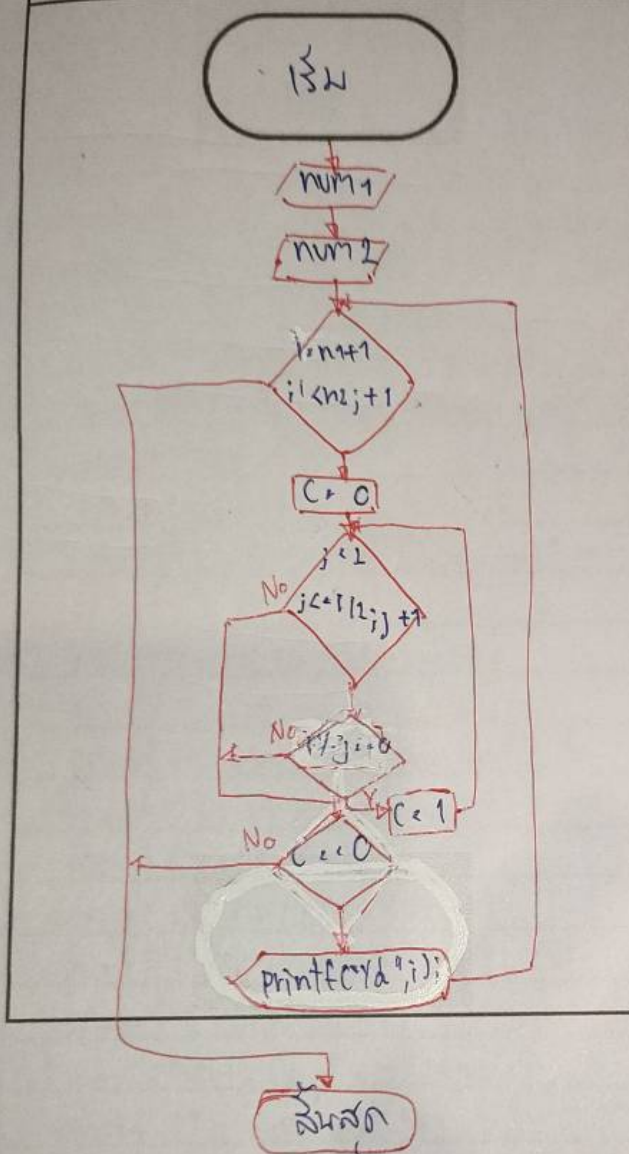 เริ่ม
num1
num2
i=n1+1
i<n2;+1
C= 0
No
j=2
No
C= 1
Y
No
C == 0
printf("%d",i);
สิ้นสุด